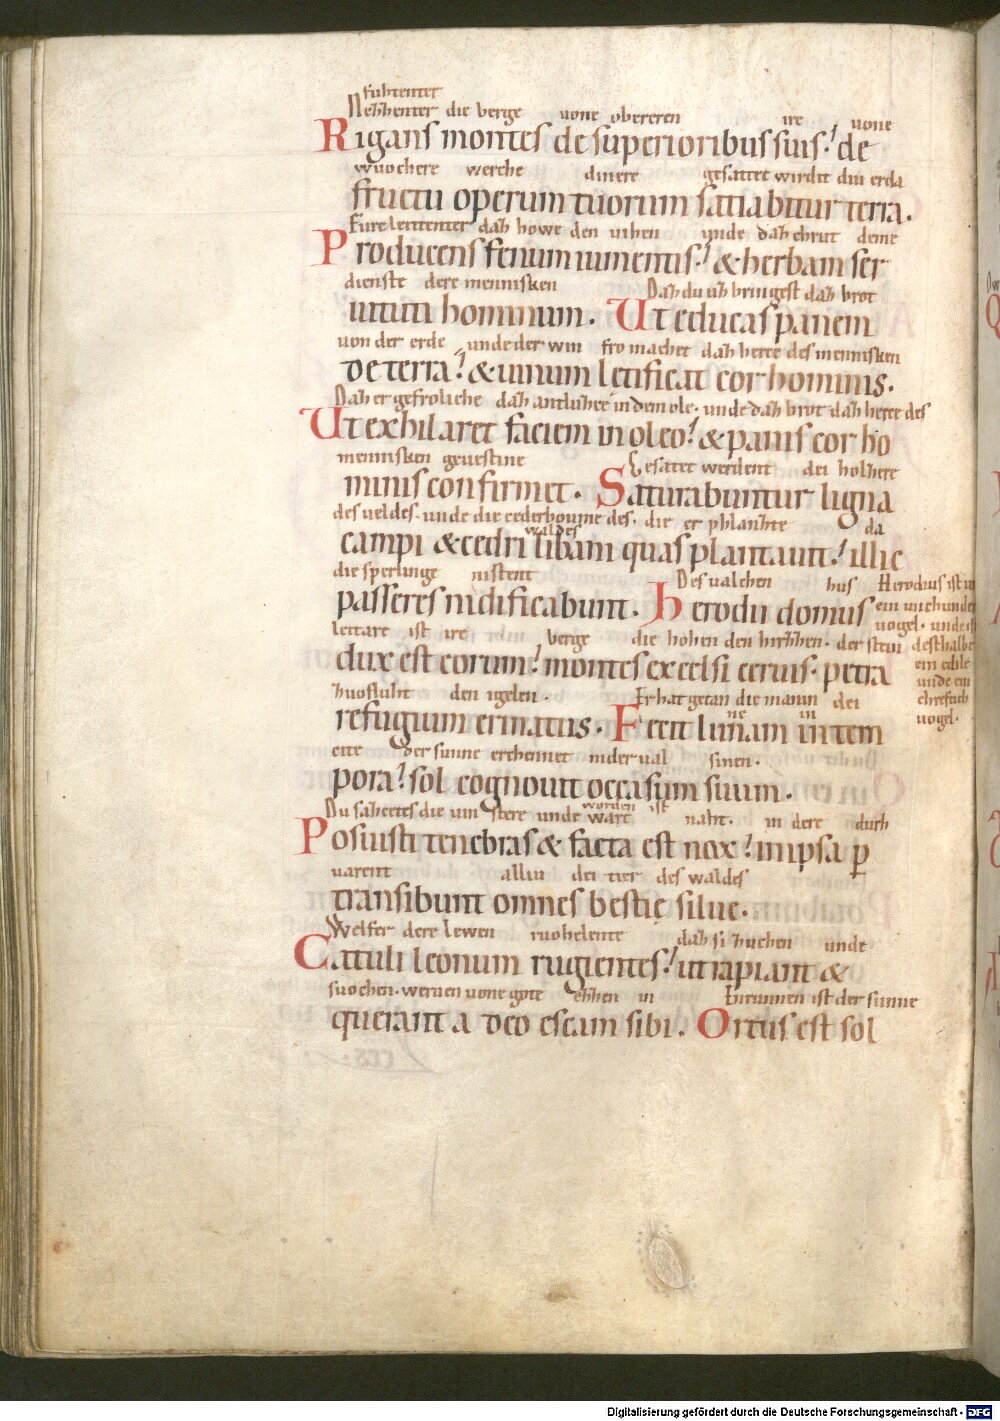 fuhtenter
Nehhenter die berge vone obereren ire vone
Rigans montes de superioribus suis. de
wuochere werche dinere gesattet wirdit diu erda
fructu operum tuorum satiabitur terra.
Fure leittenter dah howe den vihen unde dah chrut deme
Producens fenum iumentis. & herbam ser
dienste dere mennisken Dah du uh bringest dah brot
uituti hominum. Ut educas panem
von der erde unde der win fro machet dah herce des mennisken
de terra. & uinum letificat cor hominis.
Dah er gefroliche dah antluhce in dem ole. unde dah brot dah herce des
Ut exhilaret faciem in oleo. & panis cor ho
mennisken gevestine Gesatet werdent dei holhere
minis confirmet. Saturabuntur ligna
des veldes. unde die cederboume des. die er phlanhte da
waldes
campi & cedri libani quas plantauit. illic
die sperlinge nistent Des valchen hus Herodius ist
passeres nidificabunt. Herodii domus ein
leitare ist ire berge die hohen den hirhhen. der stein
vogel. unde
desthalbe
dux est eorum. montes excelsi ceruis. petra
ein edile
unde ein
huofluht den igelen. Er hat getan die manin dei
vogel.
refugium erinatiis. Fecit lunam in tem
cite der sunne erchennet nider val sinen.
pora. sol cognouit occasum suum.
Du sahcetes die vin stere unde wart worden ist naht. in dere durh
Posuisti tenebras & facta est nox. in ipsa p
varent alliu dei tier des waldes
transibunt omnes bestie silue.
Welfer dere lewen ruohelente dah si huchen unde
Catuli leonum rugientes. ut rapiant &
suochen. werven vone gote ehhen in Enrunnen ist der sunne
querant a deo escam sibi. Ortus est sol
Digitalisierung gefördert durch die Deutsche Forschungsgemeinschaft - DFG